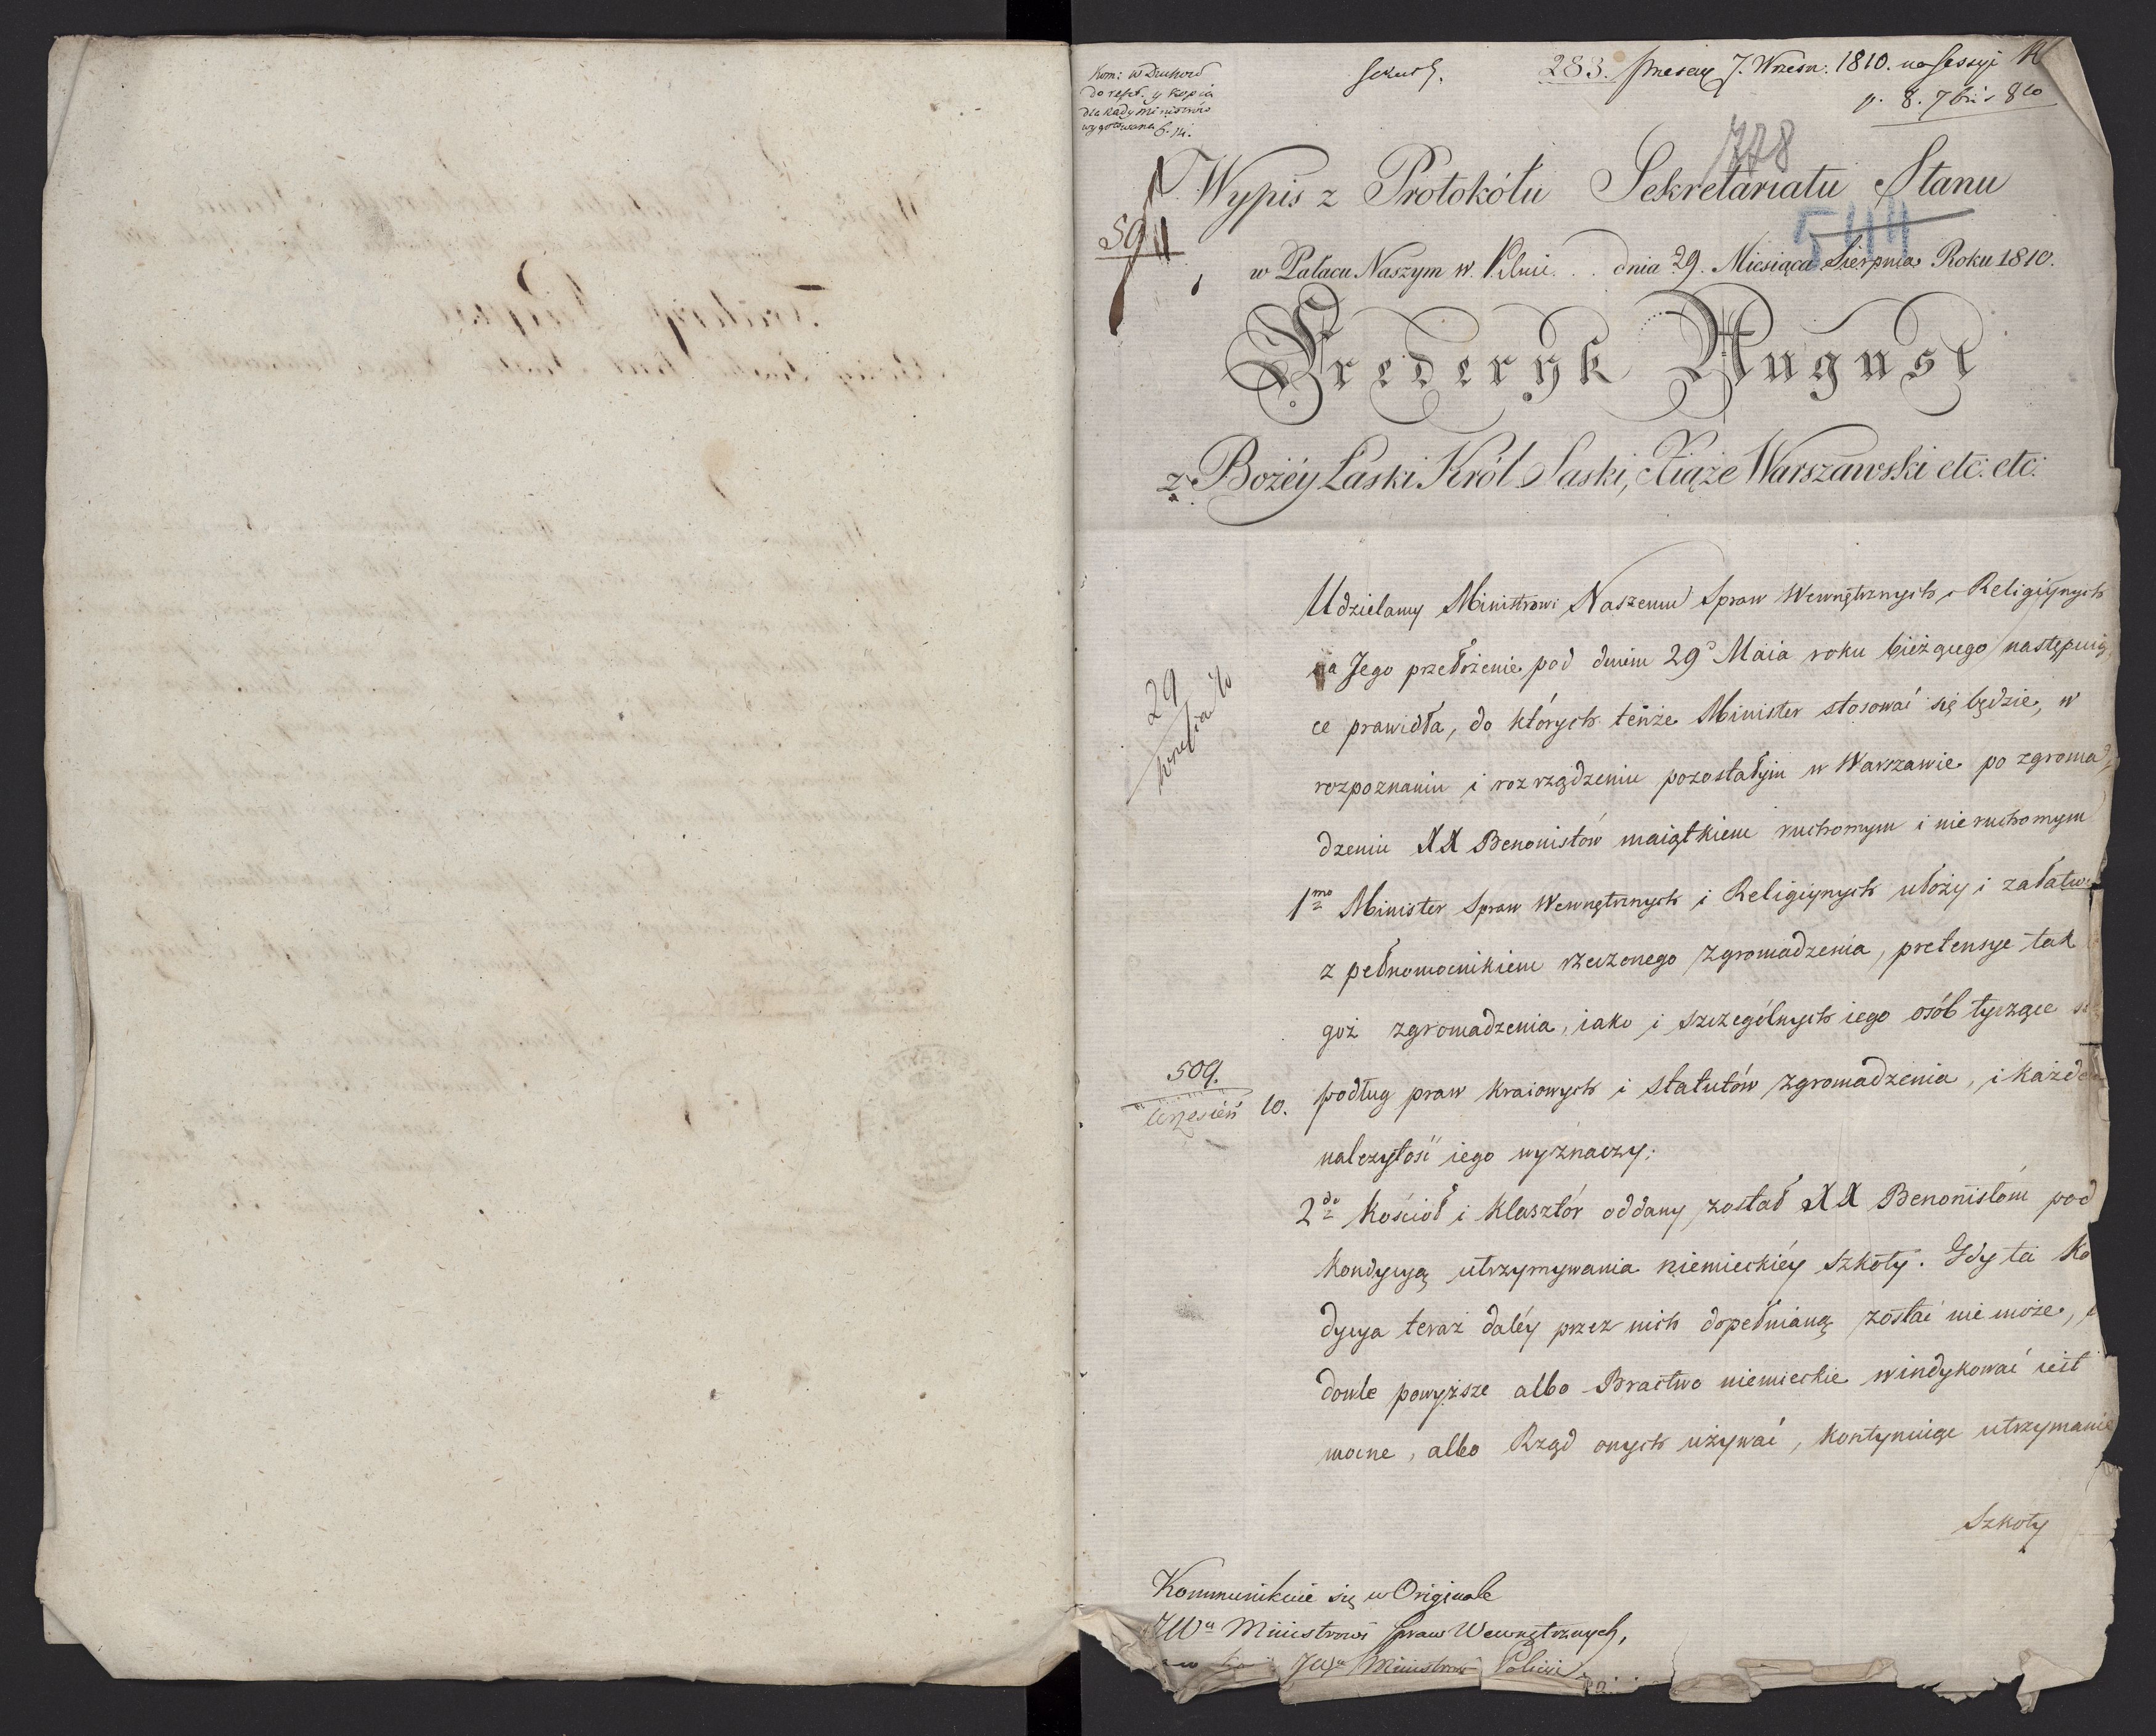 Kom: w Duchow
do resp. y kopia
dla Rady Ministrów
wygotowana 6. 14.
283. praes. 7. Wrześn: 1810. na sessyi
p. 8. 7bris 810
778
Wypis z Protokółu Sekretariatu Stanu
544
591
w Pałacu Naszym w Pilnic... dnia 29. Miesiąca Sierpnia Roku 1810.
Fryderyk August
z Bożéy Łaski Król Saski, Xiąże Warszawski etc: etc:
Udzielamy Ministrowi Naszemu Spraw Wewnętrznych i Religiynych
na Jego przełożenie pod dniem 29º Maia roku bieżącego następuią
ce prawidła, do których tenże Minister stosować się będzie, w
rozpoznaniu i rozrządzeniu pozostałym w Warszawie po zgroma
dzeniu XX Benonistów maiątkiem ruchomym i nieruchomym
29
września
1mo Minister Spraw Wewnętrznych i Religiynych ułoży i załatwi
z pełnomocnikiem rzeczonego zgromadzenia, pretensye tak
goż zgromadzenia, iako i szczególnych iego osób tyczące się
509.
Wrzesień 10.
podług praw kraiowych i statutów zgromadzenia, i każde
należytość iego wyznaczy;
2do Kościoł i Klasztór oddany został XX Benonistom pod
kondycyą utrzymywania niemieckiéy szkoły. Gdy ta Ko
dycya teraz daléy przez nich dopełnianą zostać nie może,
dowle powyższe albo Bractwo niemieckie windykować iest
mocne, albo Rząd onych używać, kontynuiąc utrzymanie
Szkoły
Kommunikuie się w Originale
JWu Ministrowi Spraw Wewnętrznych,
JWu Ministrowi Policii